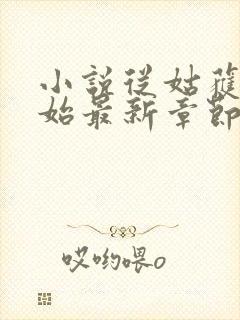 小說從姑獲
始最新章節
哎喲喂o